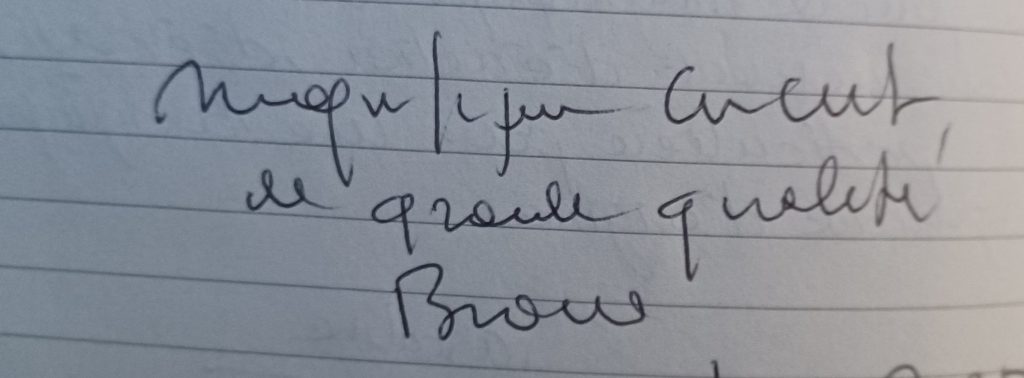 Magnifique circuit
de grande qualité
Bravo